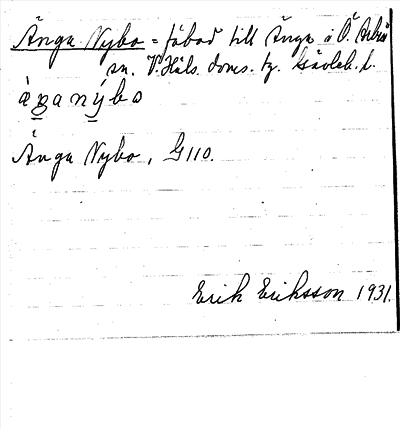 Änga Nybo = fäbod till Änga i Ö. Arbrå
sn. V. Häls. doms. tg. Gävleb. l.
áŋanýbo
Änga Nybo, G110.
Erik Eriksson 1931.